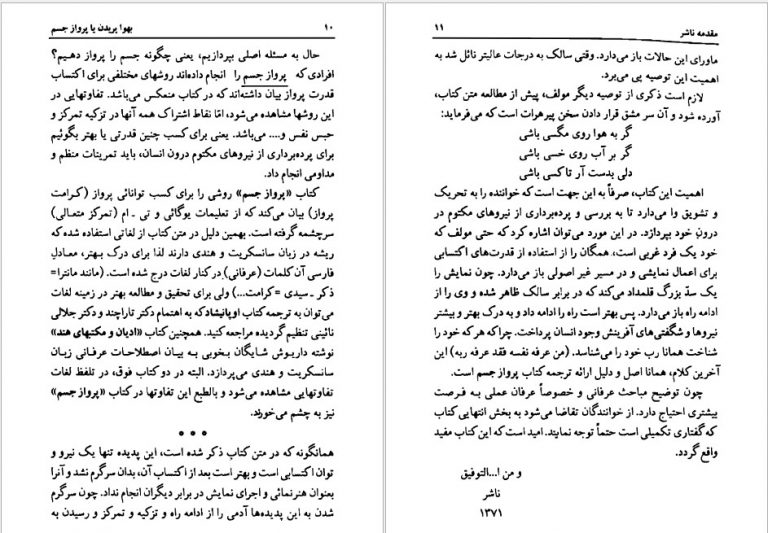 ۱۰ بهوا پریدن یا پرواز جسم
حال به مسئله اصلی بپردازیم، یعنی چگونه جسم را پرواز دهیم؟
افرادی که پرواز جسم را انجام داده‌اند روشهای مختلفی برای اکتساب
قدرت پرواز بیان داشته‌اند که در کتاب منعکس می‌باشد. تفاوتهایی در
این روشها مشاهده می‌شود، امّا نقاط اشتراک همه آنها در تزکیه تمرکز و
حبس نفس و.... می‌باشد. یعنی برای کسب چنین قدرتی یا بهتر بگوئیم
برای پرده‌برداری از نیروهای مکتوم درون انسان، باید تمرینات منظم و
مداومی انجام داد.
کتاب «پرواز جسم» روشی را برای کسب توانائی پرواز (کرامت
پرواز) بیان می‌کند که از تعلیمات یوگائی و تی ـ ام (تمرکز متعالی)
سرچشمه گرفته است. بهمین دلیل در متن کتاب از لغاتی استفاده شده که
ریشه در زبان سانسکریت و هندی دارند لذا برای درک بهتر، معادلِ
فارسی آن کلمات (عرفانی) در کنار لغات درج شده است. (مانند مانترا=
ذکر ـ سیدی =کرامت...) ولی برای تحقیق و مطالعه بهتر در زمینه لغات
می‌توان به ترجمه کتاب اوپانیشاد که به اهتمام دکتر تاراچند و دکتر جلالی
نائینی تنظیم گردیده مراجعه کنید. همچنین کتاب «ادیان و مکتبهای هند»
نوشته داریوش شایگان بخوبی به بیان اصطلاحات عرفانی زبان
سانسکریت و هندی می‌پردازد. البته در دو کتاب فوق، در تلفظ لغات
تفاوتهایی مشاهده می‌شود و بالطبع این تفاوتها در کتاب «پرواز جسم»
نیز به چشم می‌خورند.
• • •
همانگونه که در متن کتاب ذکر شده است، این پدیده تنها یک نیرو و
توان اکتسابی است و بهتر است بعد از اکتساب آن، بدان سرگرم نشد و آنرا
بعنوان هنرنمائی و اجرای نمایش در برابر دیگران انجام نداد. چون سرگرم
شدن به این پدیده‌ها آدمی را از ادامه راه و تزکیه و تمرکز و رسیدن به
مقدمه ناشر ۱۱
ماورای این حالات باز می‌دارد. وقتی سالک به درجات عالیتر نائل شد به
اهمیت این توصیه پی می‌برد.
لازم است ذکری از توصیه دیگر مولف، پیش از مطالعه متن کتاب،
آورده شود و آن سر مشق قرار دادن سخن پیر هرات است که می‌فرماید:
گر به هوا روی مگسی باشی
گر بر آب روی خسی باشی
دلی بدست آر تا کسی باشی
اهمیت این کتاب، صرفاً به این جهت است که خواننده را به تحریک
و تشویق وا می‌دارد تا به بررسی و پرده‌برداری از نیروهای مکتوم در
درونِ خود بپردازد. در این مورد می‌توان اشاره کرد که حتی مولف که
خود یک فرد غربی است، همگان را از استفاده از قدرت‌های اکتسابی
برای اعمال نمایشی و در مسیر غیر اصولی باز می‌دارد. چون نمایش را
یک سدّ بزرگ قلمداد می‌کند که در برابر سالک ظاهر شده و وی را از
ادامه راه باز می‌دارد. پس بهتر است راه را ادامه داد و به درک بهتر و بیشتر
نیروها و شگفتی‌های آفرینش وجود انسان پرداخت. چرا که هر که خود را
شناخت همانا رب خود را می‌شناسد. (من عرفه نفسه فقد عرفه ربه) این
آخرین کلام، همانا اصل و دلیل ارائه ترجمه کتاب پرواز جسم است.
چون توضیح مباحث عرفانی و خصوصاً عرفان عملی به فرصت
بیشتری احتیاج دارد. از خوانندگان تقاضا می‌شود به بخش انتهایی کتاب
که گفتاری تکمیلی است حتماً توجه نمایند. امید است که این کتاب مفید
واقع گردد.
و من ا...التوفیق
ناشر
۱۳۷۱